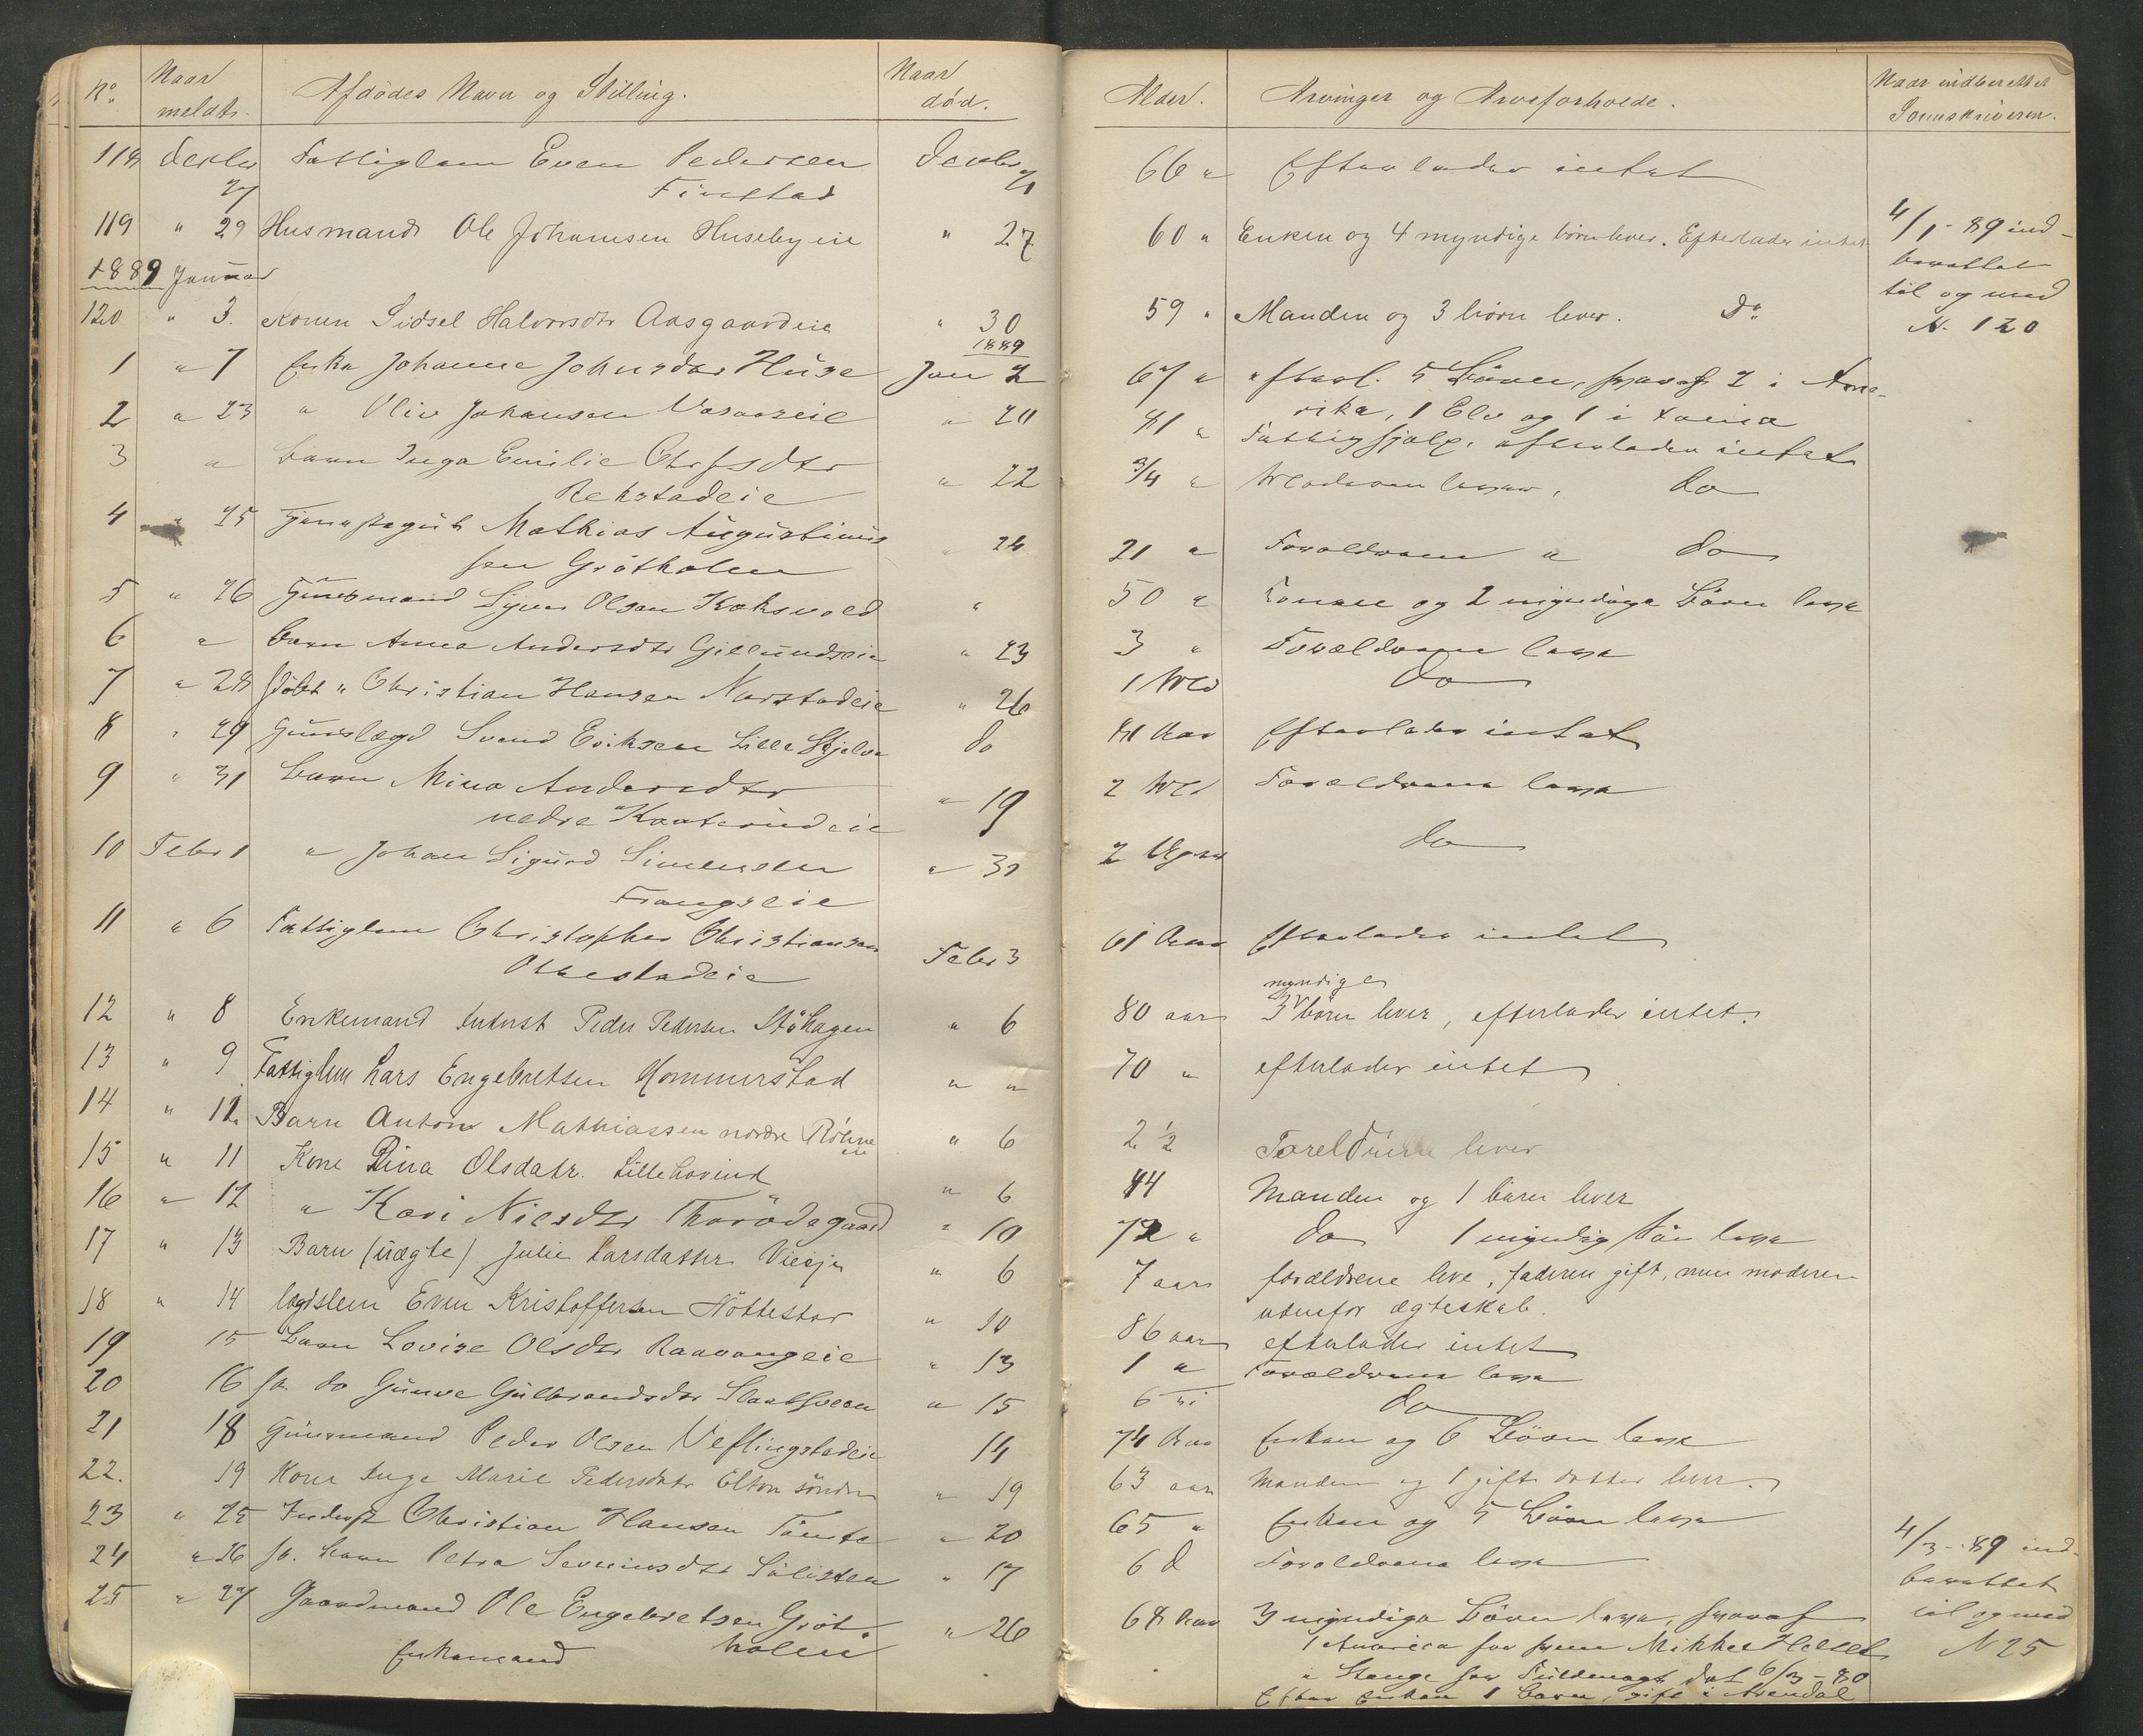 No. Naar meldt. Afdødes Navn og Stilling. Naar død. Alder. Arvinger og Arveforholde. Naar indberettet Sorenskriveren.
118 Decbr 27 Fattiglem Even Pedersen Decbr 21 66 " Efterlader intet
Finstad
119 " 29 Husmand Ole Johannsen Husebyeie " 27 60 " Enken og 4 myndige børn lever. Efterlader intet 4/1-89 ind-
berettet
til og med
N. 120
1889 Januar
120 " 3. Konen Sidsel Halvorsdtr Aasgaardeie " 30 59 " Manden og 3 børn lever. Do
1889
1 " 7 Enke Johanne Johnsdtr Huse Jan 2 67 " efterl. 5 Börn, hvoraf 2 i Ame-
rika, 1 Elv og 1 i
2 " 23 " Oliv Johansen " 20 81 " Fattighjælp, efterlader intet
3 " Barn Inga Emilie " 22 3/4 " Moderen lever, do
Rekstadeie
4 " 25 Mathias Augustinus " 24 21 " Forældrene " do
sen Grötholen
5 " 26 Olsen Koksvold " 50 " Konen og 2 myndige Börn leve
6 " Barn Anna Andersdtr Gillundseie " 23 3 " Forældrene leve
7 " 28 " Christian Hansen Narstadeie " 26 1 Md do
8 " 29 Svend Eriksen Lille Skjelve do 81 Aar Efterlader intet
9 " 31 Barn Mina Andersdtr " 19 2 Md Forældrene leve
nedre Kaaterudeie
10 Febr 1 " Johan Sigurd Simensen " 31 2 Uger do
Frangseie
11 " 6 Fattiglem Christopher Christiansen Febr 3 61 Aar Efterlader intet
myndige
12 " 8 Enkemand Inderst Peder Pedersen Stöhagen " 6 80 aar 3 V börn lever, efterlader intet.
13 " 9 Fattiglem Lars Engebretsen Hommerstad " " 70 " efterlader intet
14 " 12 Barn Anton Mathiassen nordre Röhne " 6 2 1/2 Foreldrene lever
eie
15 " 11 Kone Dina Olsdatr. Lillehovind " 6 44 Manden og 1 barn lever
16 " 12 " Kari Nilsdtr Thorödegaard " 10 72 " do 1 myndig Sön leve
17 " 13 Barn (uægte) Julie Larsdatter " 6 7 aar forældrene leve, faderen gift, men moderen
udenfor ægteskab.
18 " 14 lægdslem Even Kristoffersen Nöttestad " 10 86 aar efterlader intet
19 15 Barn Lovise Olsdtr Raavangeie " 13 1 " Forældrene leve
20 16 do Gunve Gulbrandsdtr " 15 6 do
21 18 Peder Olsen Veflingstadeie 14 74 Aar Enken og 6 Börn leve
22. 19 Kone Inge Marie Pedersdatr Elton söndre " 19 63 aar manden og 1 gift datter lever.
23 " 25 Inderst Christian Hansen Tömte " 20 65 " Enken og 5 Börn leve
24 " 26 Barn Petra Severinsdtr " 17 6 d Forældrene leve 4/3-89 ind-
berettet
til og med
N 25
25 " 27 Gaardmand Ole Engebretsen Gröt- " 26 68 Aar 3 myndige Börn leve, hvoraf
Enkemand holen 1 America Mikkel
" Stange har Fuldmagt dat 6/3-80
Efter Enken 1 Barn, gift i Arendal